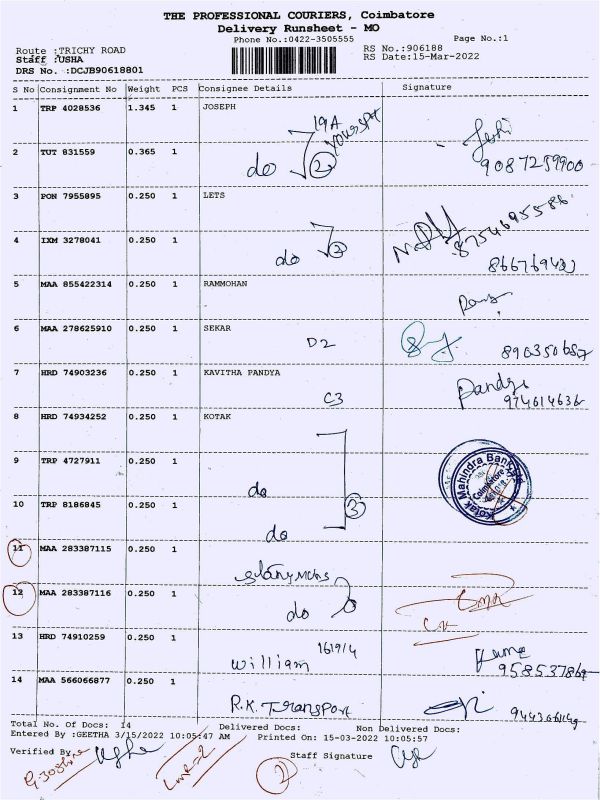 THE PROFESSIONAL COURIERS, Coimbatore
Delivery Runsheet - MO
Phone No.:0422-3505555
Page No.:1
Route :TRICHY ROAD
RS No.:906188
Staff :USHA
RS Date:15-Mar-2022
DRS No. :DCJB90618801
S No Consignment No Weight PCS Consignee Details Signature
1 TRP 4028536 1.345 1 JOSEPH
19A
2 TUT 831559 0.365 1 do 2
9087259900
3 PON 7955895 0.250 1 LETS
8754695586
4 IXM 3278041 0.250 1 do 2
5 MAA 855422314 0.250 1 RAMMOHAN
6 MAA 278625910 0.250 1 SEKAR
D2
7 HRD 74903236 0.250 1 KAVITHA PANDYA
C3
Pandya
974614636
8 HRD 74934252 0.250 1 KOTAK
9 TRP 4727911 0.250 1 do
Kotak Mahindra Bank
Coimbatore
10 TRP 8186845 0.250 1 do 3
11 MAA 283387115 0.250 1
12 MAA 283387116 0.250 1 do
13 HRD 74910259 0.250 1 William 1619/4
14 MAA 566066877 0.250 1 R.K. Transport
Total No. Of Docs: 14 Delivered Docs: Non Delivered Docs:
Entered By :GEETHA 3/15/2022 10:05:47 AM Printed On: 15-03-2022 10:05:57
Verified By
Staff Signature
2